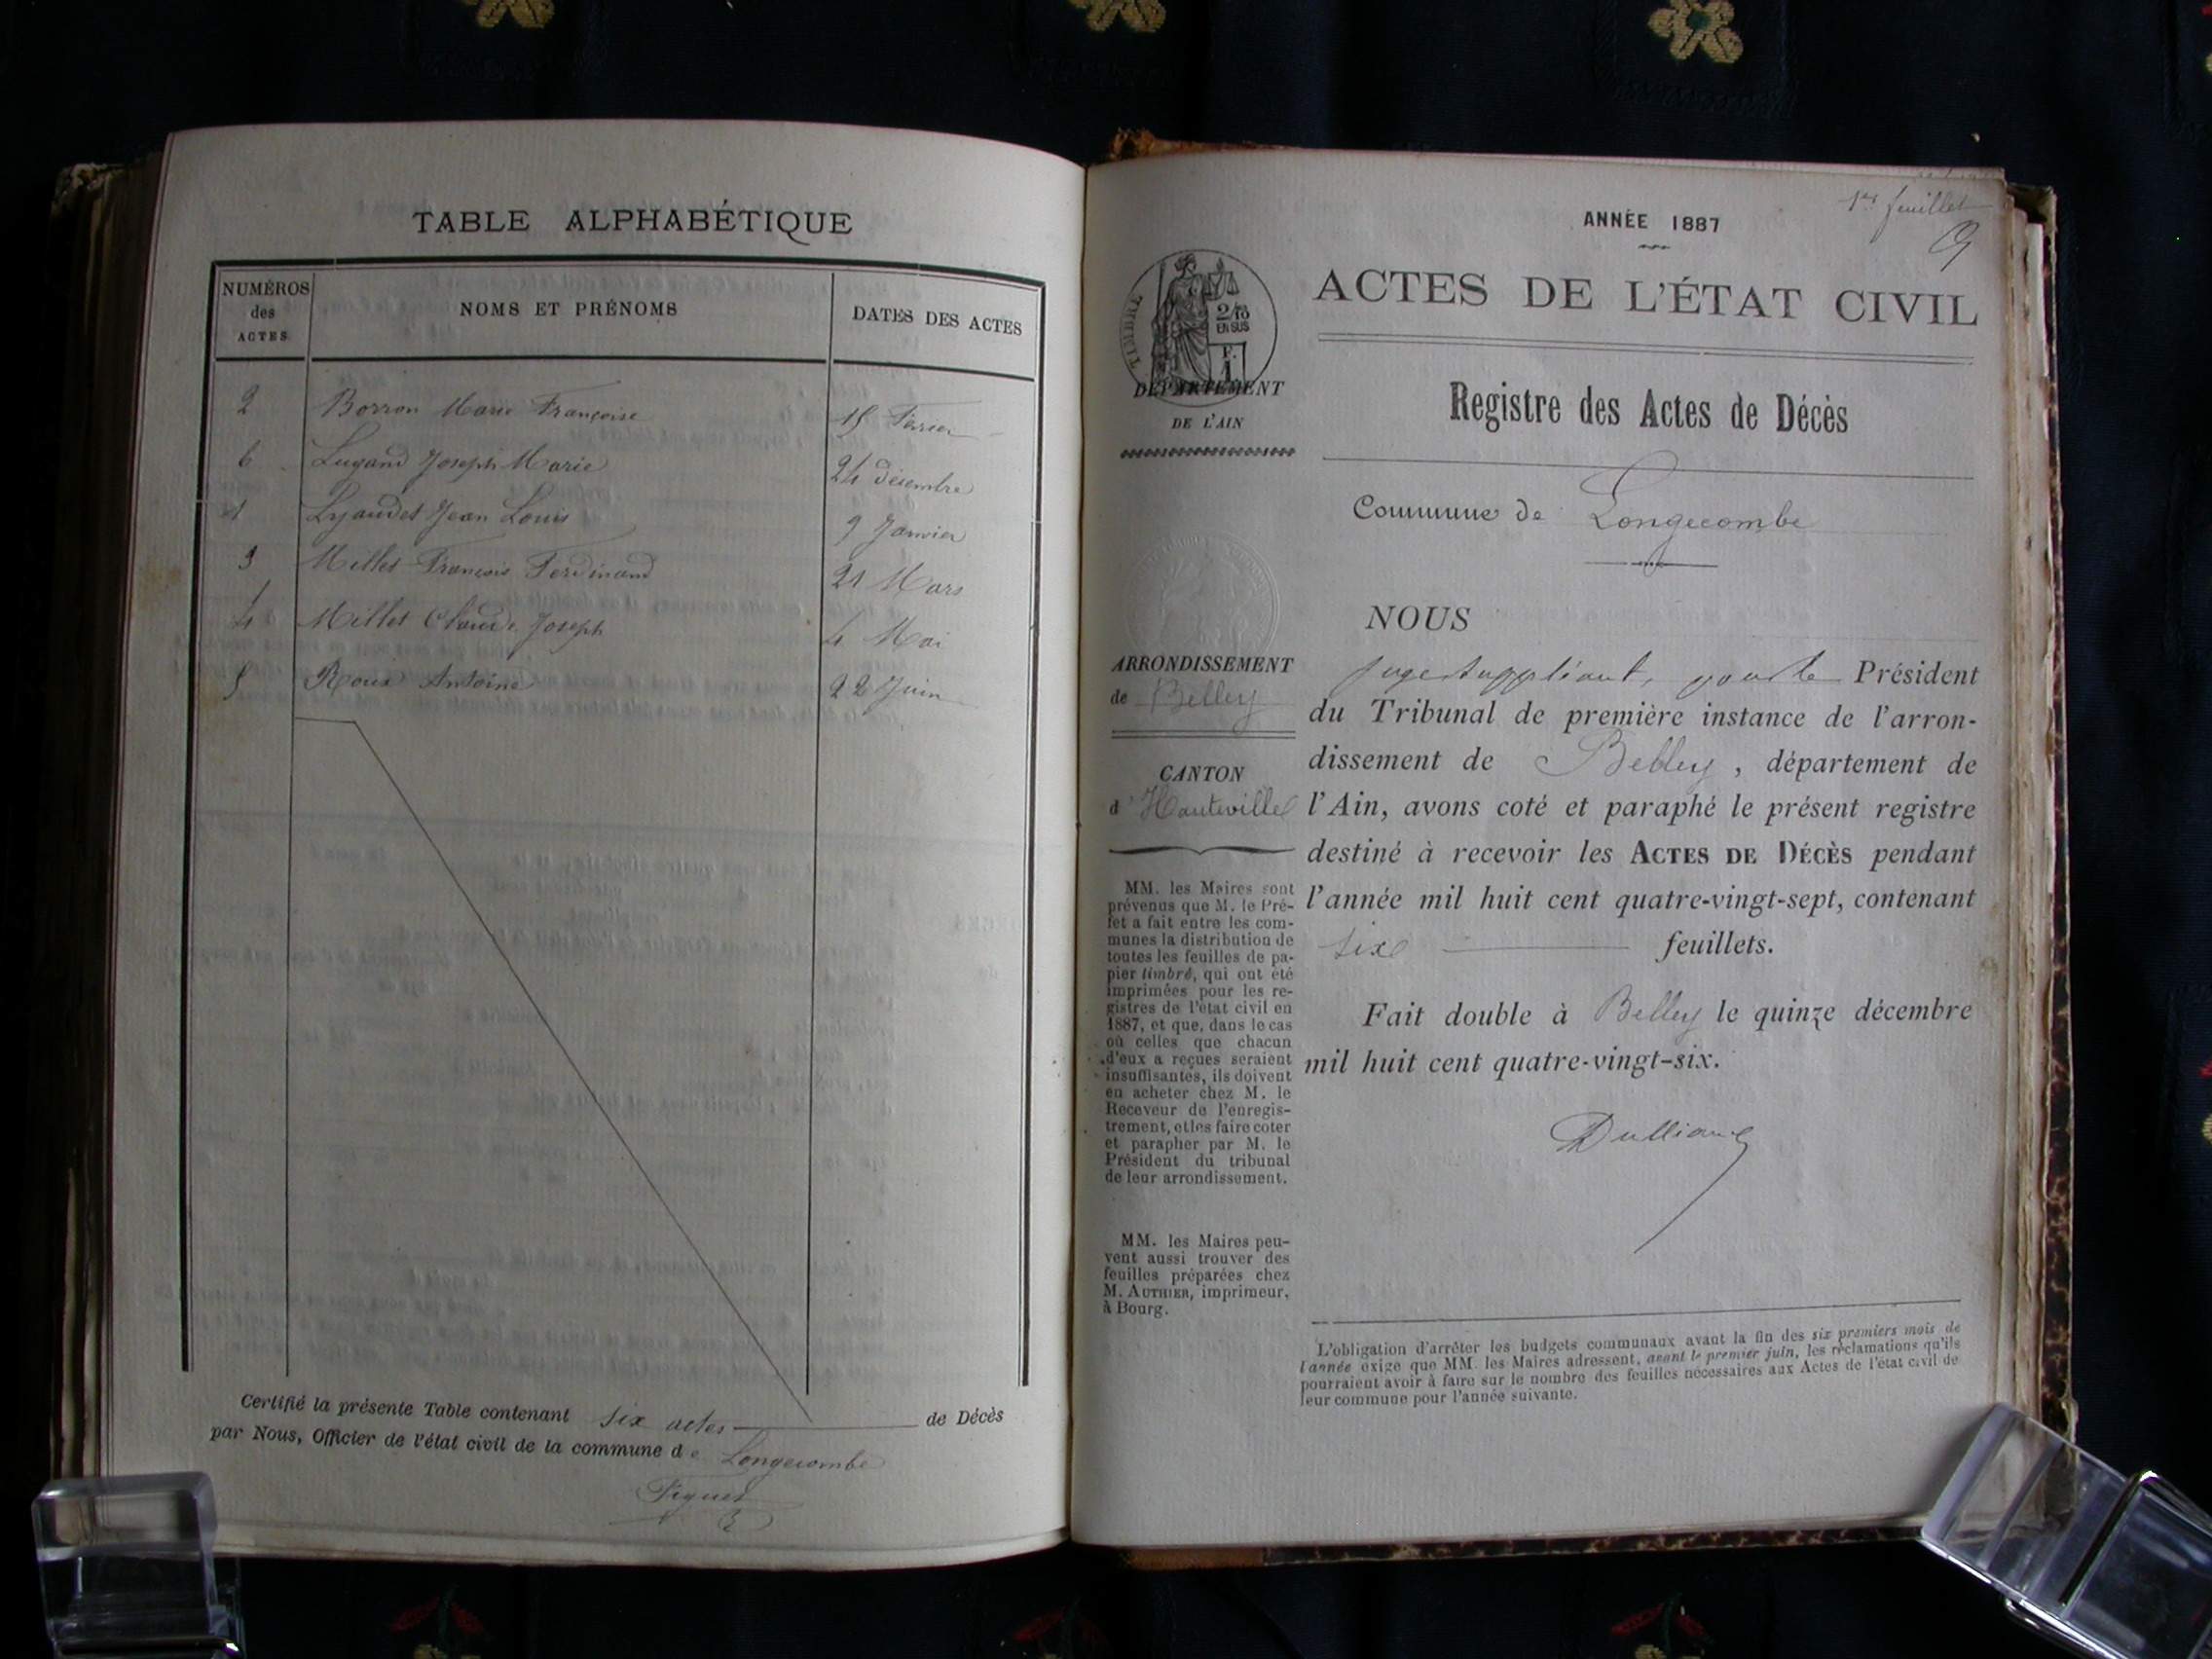 TABLE ALPHABÉTIQUE
NUMÉROS
des
ACTES
NOMS ET PRÉNOMS
DATES DES ACTES
2 Borron Marie Françoise 15 Février
6 Lugand Joseph Marie 24 décembre
1 Lyaudet Jean Louis 9 Janvier
3 Millet François Ferdinand 21 Mars
4 Millet Claude Joseph 4 Mai
5 Roux Antoine 22 Juin
Certifié la présente Table contenant six actes de Décès
par Nous, Officier de l'état civil de la commune de Longecombe
Figuet
1er feuillet
ANNÉE 1887
TIMBRE
2/10
EN SUS
F.
1
ACTES DE L'ÉTAT CIVIL
DÉPARTEMENT
DE L'AIN
Registre des Actes de Décès
Commune de Longecombe
ARRONDISSEMENT
de Belley
CANTON
d'Hauteville
MM. les Maires sont
prévenus que M. le Pré-
fet a fait entre les com-
munes la distribution de
toutes les feuilles de pa-
pier timbré, qui ont été
imprimées pour les re-
gistres de l'état civil en
1887, et que, dans le cas
où celles que chacun
d'eux a reçues seraient
insuffisantes, ils doivent
en acheter chez M. le
Receveur de l'enregis-
trement, et les faire coter
et parapher par M. le
Président du tribunal
de leur arrondissement.
MM. les Maires peu-
vent aussi trouver des
feuilles préparées chez
M. AUTHIER, imprimeur,
à Bourg.
NOUS
juge suppléant, pour le Président
du Tribunal de première instance de l'arron-
dissement de Belley, département de
l'Ain, avons coté et paraphé le présent registre
destiné à recevoir les ACTES DE DÉCÈS pendant
l'année mil huit cent quatre-vingt-sept, contenant
six feuillets.
Fait double à Belley le quinze décembre
mil huit cent quatre-vingt-six.
L'obligation d'arrêter les budgets communaux avant la fin des six premiers mois de
l'année exige que MM. les Maires adressent, avant le premier juin, les réclamations qu'ils
pourraient avoir à faire sur le nombre des feuilles nécessaires aux Actes de l'état civil de
leur commune pour l'année suivante.